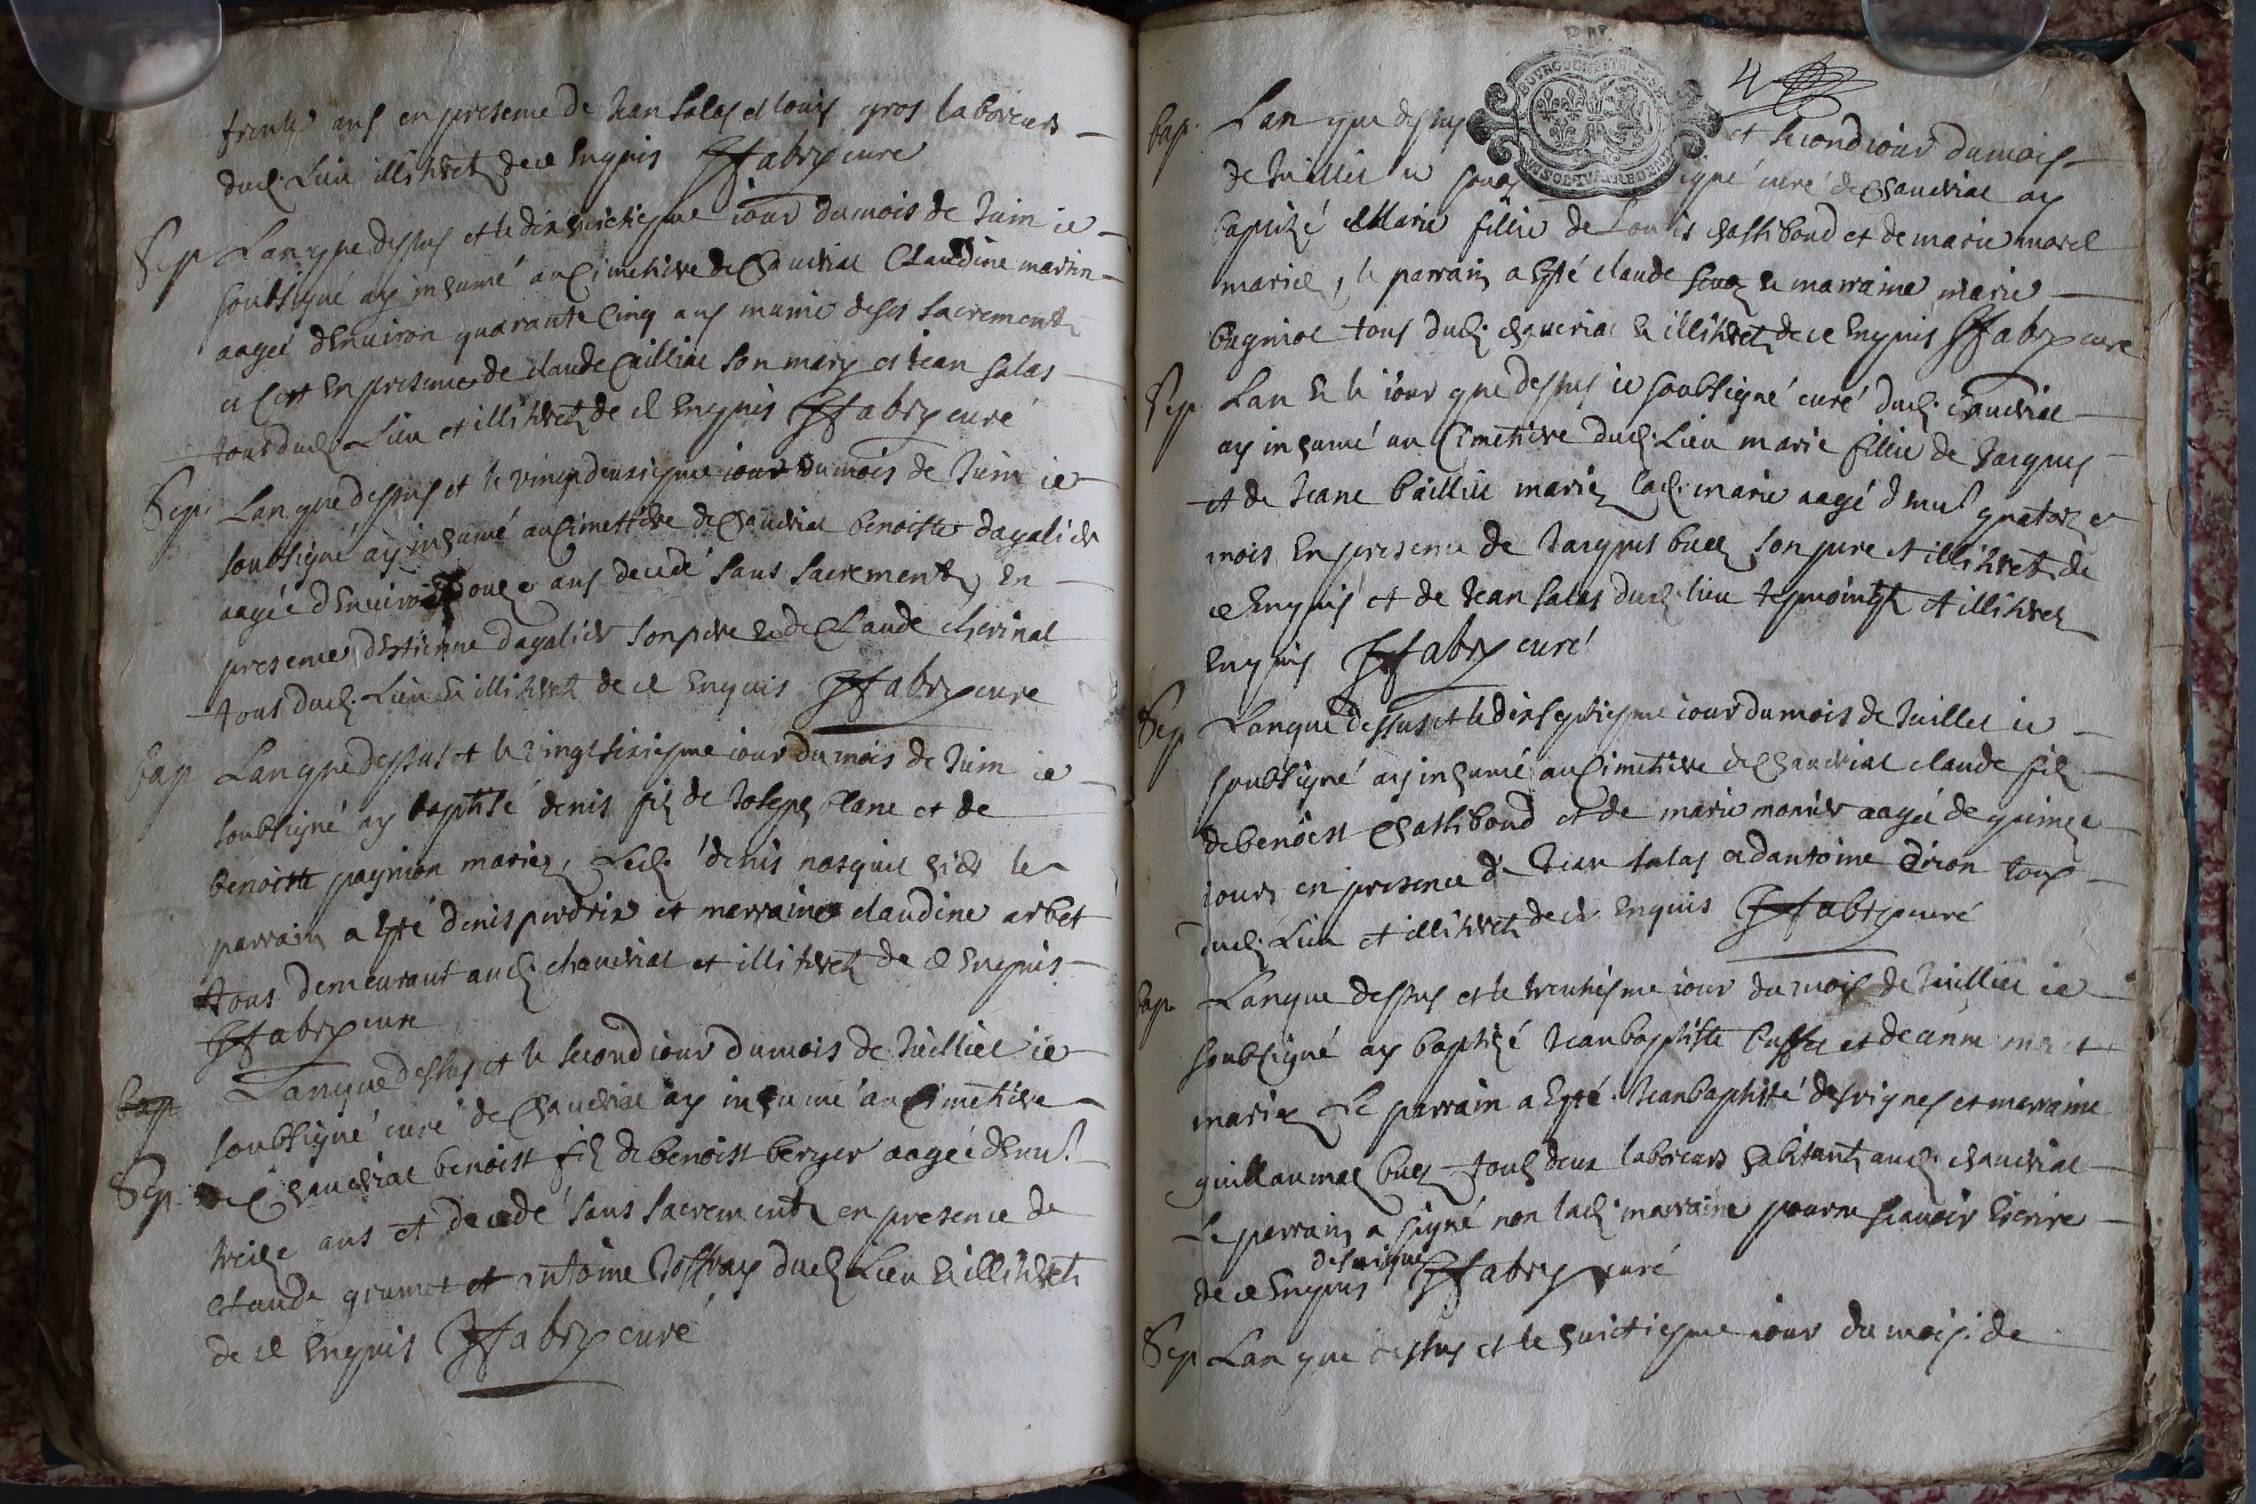 trente ans en presence de Jean Salas et louis gros laboreurs
dud. Lieu illiterez de ce Enquis JFabry curé
Sep Lan que dessus et le dix huictiesme iour du mois de Juin ie
soubsigné ay inhumé au Cimetiere de Chaveriat Claudine martin
aagée dEnviron quarante Cinq ans munie de ses Sacrements
en presence de claude Cailliat son mary et Jean Salas
tous dud. Lieu et illiterez de ce Enquis JFabry curé
Sep. Lan que dessus et le vingtdeuxiesme iour du mois de Juin ie
soubsigné ay inhumé au Cimettiere de Chaveriat benoiste dagalier
aagée dEnviron douze ans decedé sans sacrements, En
presence dEstienne dagalier son pere et de Claude chevinat
tous dud. Lieu et illiterez de ce Enquis JFabry curé
bap Lan que dessus et le vingt sixiesme iour du mois de Juin ie
soubsigné ay baptisé denis fils de Joseph Clane et de
benoiste pagnion mariez, Led. denis nasquit hier le
parrain a Esté denis perdrix et marraine claudine arbet
tous demeurant aud. chaveriat et illiterez de ce Enquis
JFabry curé
bap Lan que dessus et le second iour du mois de Juilliet ie
soubsigné curé de Chaveriat ay inhumé au Cimetiere
Sep. de Chaveriat benoist fils de benoist berger aagée dEnv.
treize ans et decedé sans sacrements en presence de
claude grumet et antoine Joffray dud. Lieu et illiterez
de ce Enquis JFabry curé
4
BOURGOGNE
bap. Lan que dessus et second iour du mois
de Juilliet ie soubsigné curé de Chaveriat ay
baptizé Marie fillie de Louis chastiboud et de marie morel
mariez, le parrain a Esté claude et marraine marie
bugniot tous dud. chaveriat et illiterez de ce Enquis JFabry curé
Sep. Lan et le iour que dessus ie soubsigné curé dud. chaveriat
ay inhumé au Cimetiere dud. Lieu marie fillie de Jacques
et de Jeane baillie mariez lad. marie aagé denv. quatorze
mois En presence de Jacques buez son pere et illiterez de
ce Enquis et de Jean Salas dud. lieu tesmointz et illiterez
Enquis JFabry curé
Sep Lan que dessus et le dixseptiesme iour du mois de Juillet ie
soubsigné ay inhumé au Cimetiere de Chaveriat claude fils
de benoist Chastiboud et de marie monier aagée de quinze
iours en presence de Jean Salas et dantoine Cirion tous
dud. Lieu et illiterez de ce Enquis JFabry curé
bap. Lan que dessus et le trentiesme iour du mois de Juilliet ie
soubsigné ay baptizé Jean baptiste buffet et de anne
mariez Le parrain a Esté Jean baptiste desvignes et marraine
guillaumaz buez tous deux laboreurs habitants aud. chaveriat
Le parrain a signé non lad. marraine pour ne scavoir Escrire
de ce Enquis desvignes JFabry curé
Sep Lan que dessus et le huictiesme iour du mois de